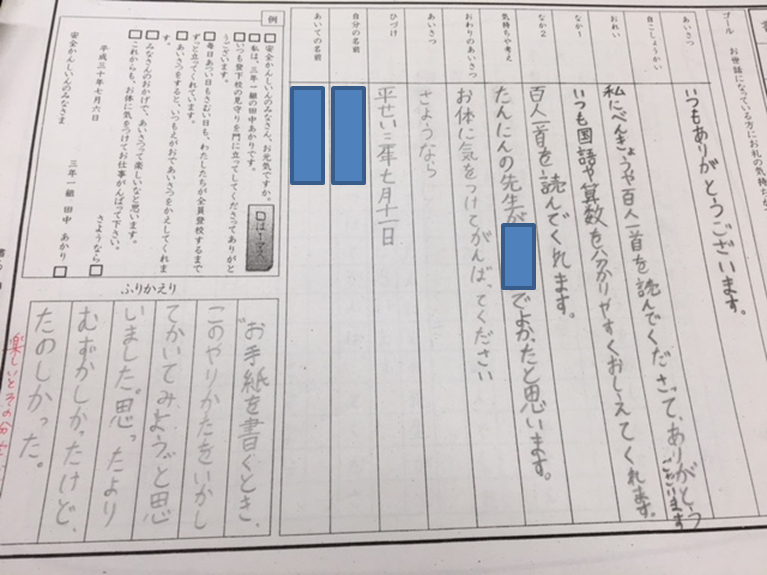 ゴール お世話になっている方にお礼の気持ちが
あいさつ
いつもありがとうございます。
自こしょうかい
私にべんきょうや百人一首を読んでくださって、ありがとうございます
おれい
いつも国語や算数を分かりやすくおしえてくれます。
なか1
百人一首を読んでくれます。
なか2
気持ちや考え
たんにんの先生が
でよかったと思います。
おわりのあいさつ
お体に気をつけてがんばってください
あいさつ
さようなら
ひづけ
平せい三十年七月十一日
自分の名前
あいての名前
例
□は一マス
□安全かんしいんのみなさん、お元気ですか。
□私は、三年一組の田中あかりです。
□いつも登下校の見守りを門に立ってしてくださってありがと
うございます。
□毎日あつい日もさむい日も、わたしたちが全員登校するまで
ずっと立ってくれています。
□あいさつをすると、いつもえがおであいさつをかえしてくれま
す。
□みなさんのおかげで、あいさつって楽しいなと思います。
□これからも、お体に気をつけてお仕事がんばって下さい。
さようなら□
平成三十年七月六日
三年一組 田中 あかり□
安全かんしいんのみなさま
ふりかえり
お手紙を書くとき、
このやりかたをいかし
てかいてみようと思
いました。思ったより
むずかしかったけど、
たのしかった。